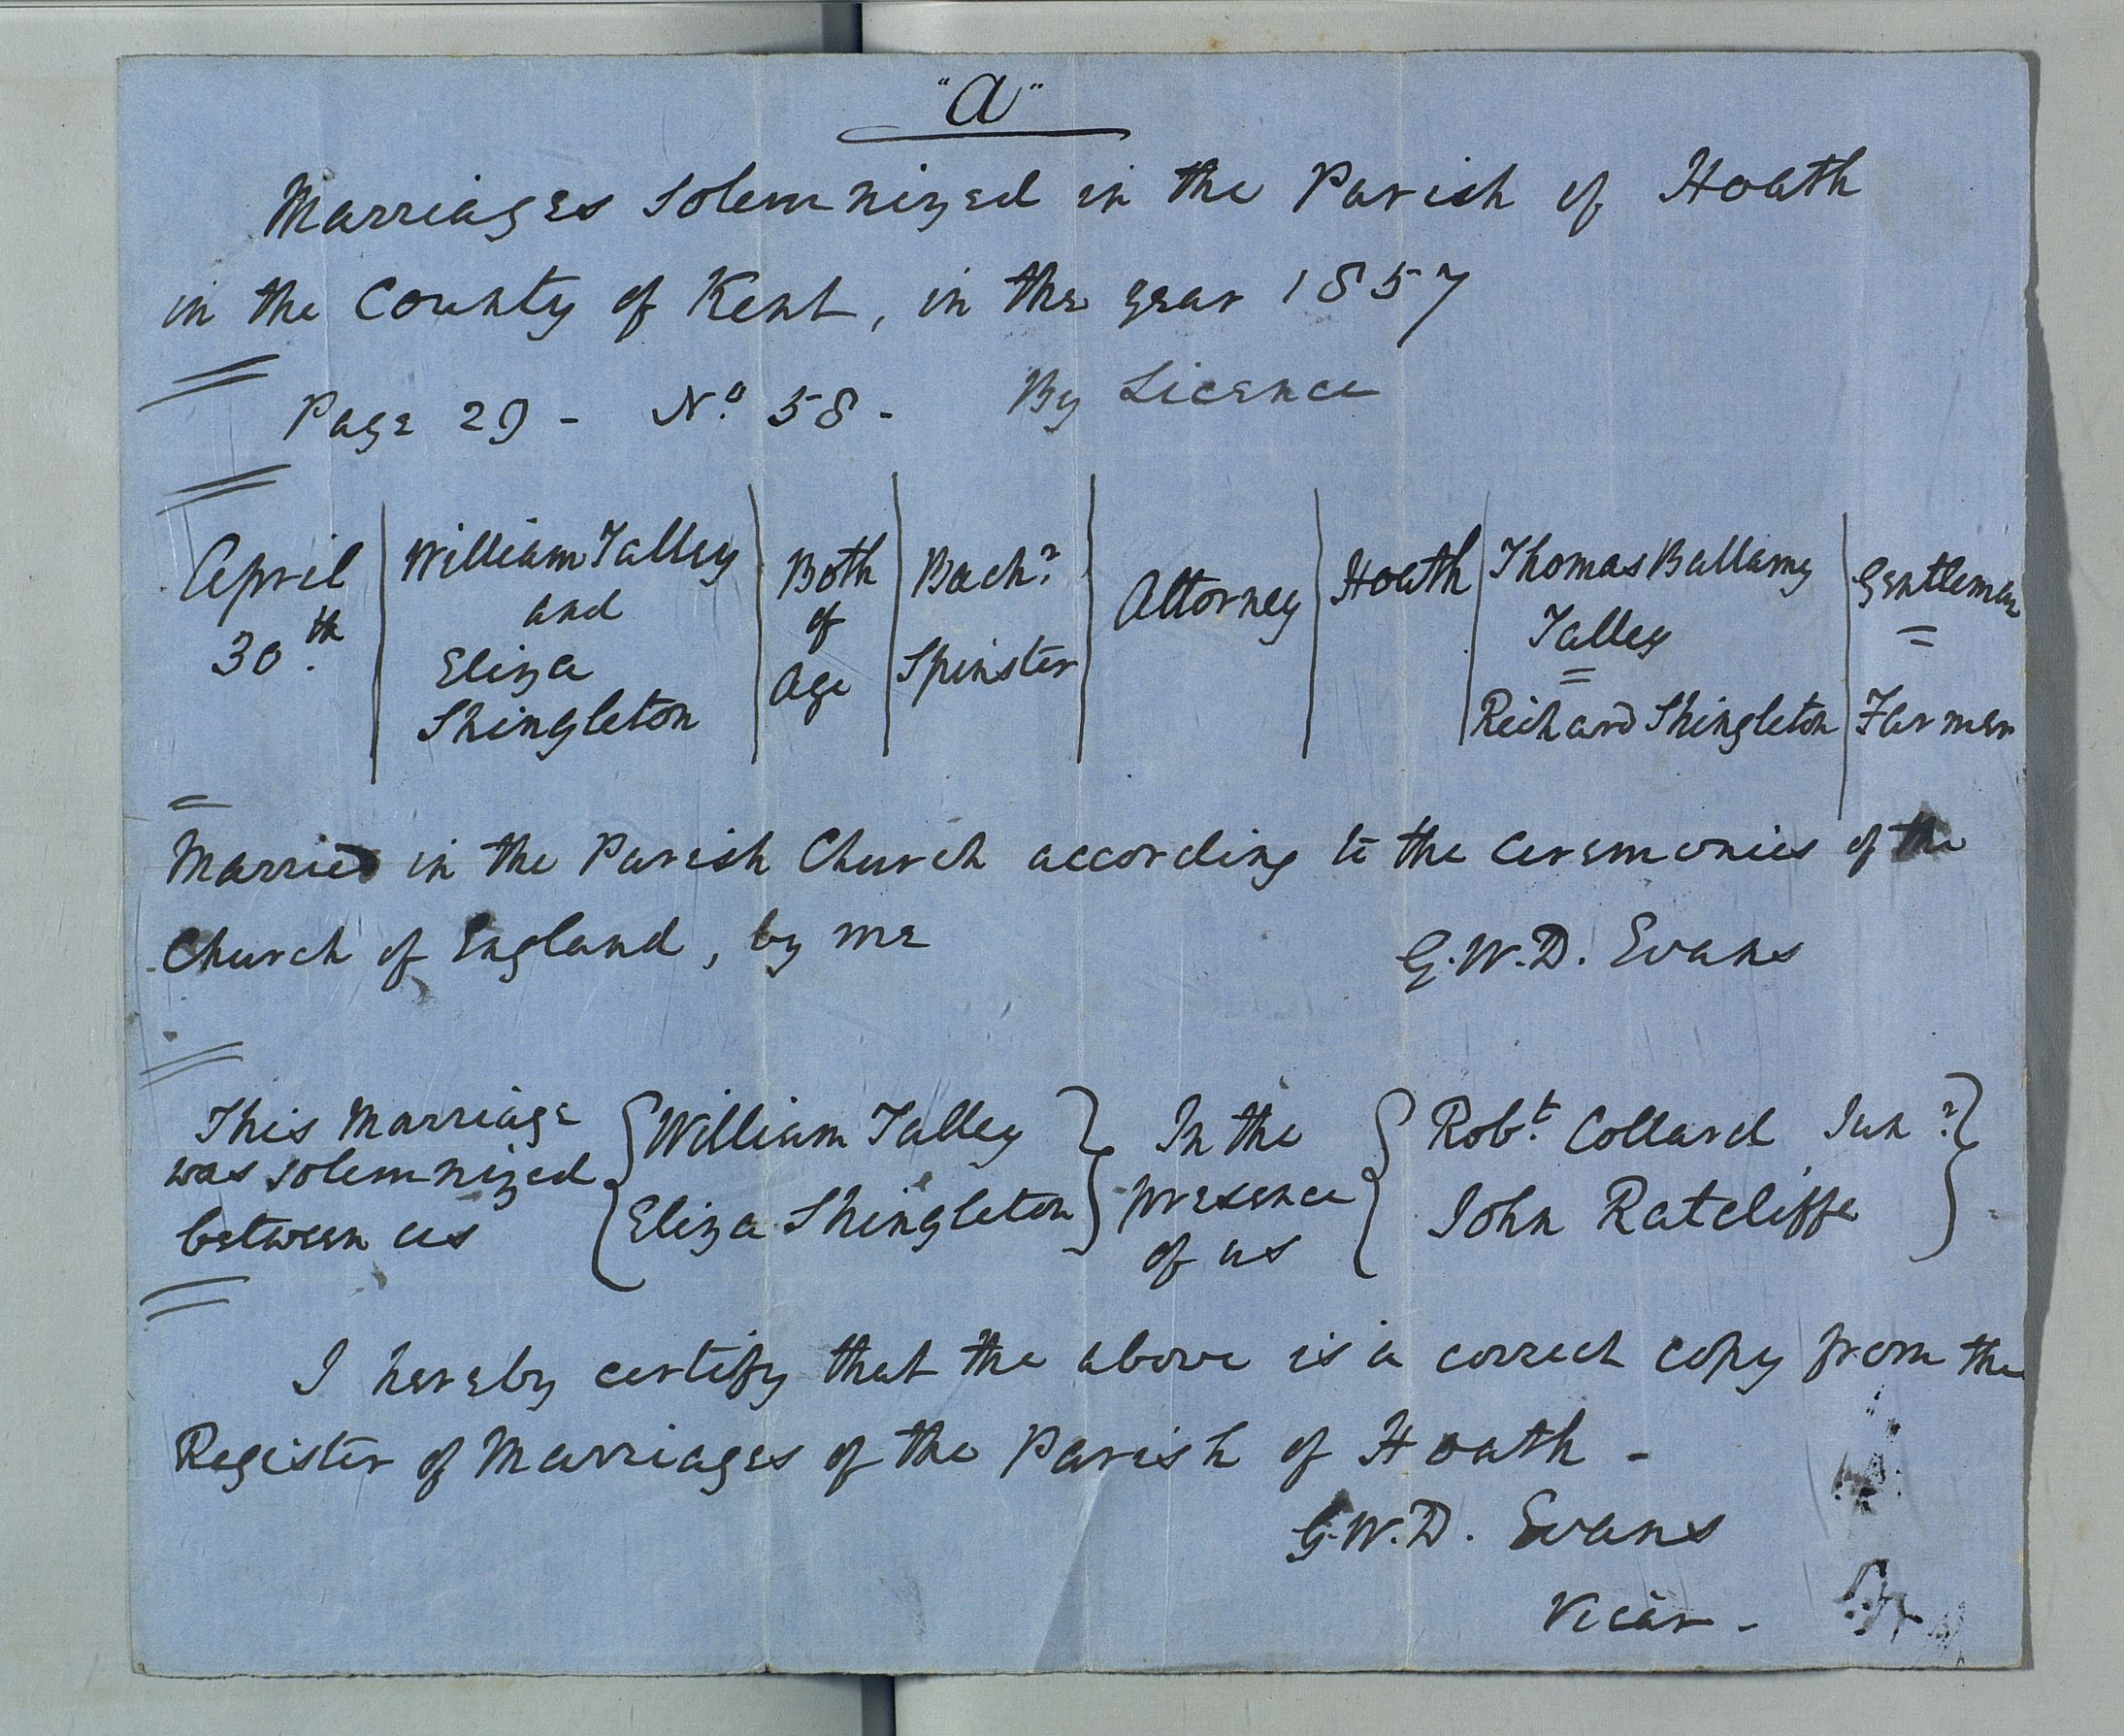 "A"
Marriages solemnized in the Parish of Hoath
in the County of Kent, in the year 1857
Page 29 - No. 58 - By Licence
April 30.th | William Talley and Eliza Shingleton | Both of Age | Bachr Spinster | Attorney | Hoath | Thomas Bellamy Talley = Richard Shingleton | Gentleman = Farmer
Married in the Parish Church according to the ceremonies of the
Church of England, by me G.W.D. Evans
This Marriage was solemnized between us { William Talley Eliza Shingleton } In the presence of us { Robt. Collard Junr John Ratcliffe }
I hereby certify that the above is a correct copy from the
Register of Marriages of the Parish of Hoath -
G.W.D. Evans
Vicar -